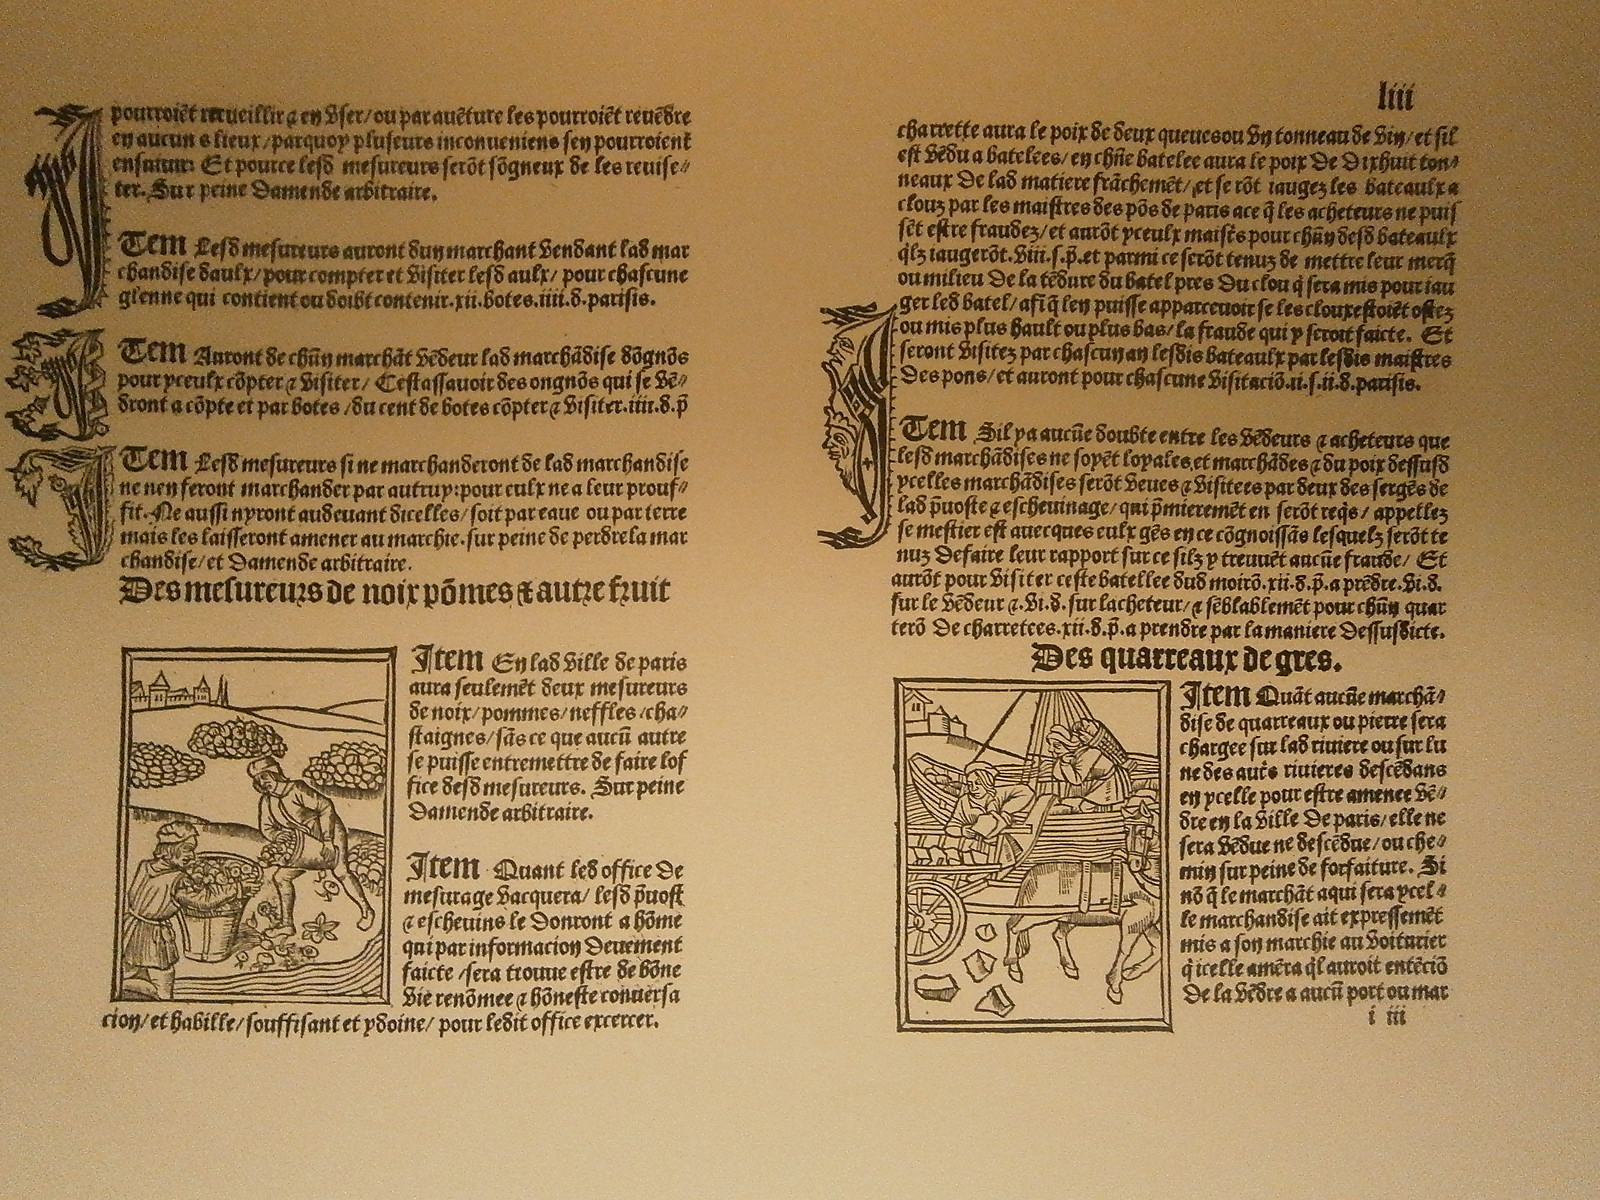 pourroiēt recueillir ⁊ en vser/ou par auēture les pourroiēt reuēdre
en aucuns lieux/parquoy plusieurs inconueniens sen pourroient
ensuiuir. Et pource lesd mesureurs serōt sōgneux de les reuise⸗
ter. Sur peine Damende arbitraire.
ITem Lesd mesureurs auront dun marchant vendant lad mar
chandise daulx/pour compter et visiter lesd aulx/ pour chascune
glenne qui contient ou doibt contenir.xii.botes.iiii.d.parisis.
ITem Auront de chūn marchāt vēdeur lad marchādise dōgnōs
pour yceulx cōpter ⁊ visiter/ Cestassauoir des ongnōs qui se vē⸗
dront a cōpte et par botes/du cent de botes cōpter ⁊ visiter.iiii.d.p̄
ITem Lesd mesureurs si ne marchanderont de lad marchandise
ne nen feront marchander par autruy:pour eulx ne a leur prouf⸗
fit. Ne aussi nyront audeuant dicelles/soit par eaue ou par terre
mais les laisseront amener au marchie.sur peine de perdre la mar
chandise/et Damende arbitraire.
Des mesureurs de noix pōmes ⁊ autre fruit
Item En lad ville de paris
aura seulemēt deux mesureurs
de noix/pommes/neffles/cha⸗
staignes/sās ce que aucū autre
se puisse entremettre de faire lof
fice desd mesureurs. Sur peine
Damende arbitraire.
Item Quant led office De
mesurage vacquera/ lesd p̄uost
⁊ escheuins le Donront a hōme
qui par informacion Deuement
faicte/sera trouue estre de bōne
vie renōmee ⁊ hōneste conuersa
cion/et habille/souffisant et ydoine/ pour ledit office excercer.
liii
charrette aura le poix de deux queues ou vn tonneau de vin/et sil
est vēdu a batelees/en chūe batelee aura le poix De Dixhuit ton⸗
neaux De lad matiere frāchemēt/et serōt iaugez les bateaulx a
clouz par les maistres des pōs de paris ace q̄ les acheteurs ne puis
sēt estre fraudez/et aurōt yceulx maistēs pour chūn desd bateaulx
qlz iaugerōt.viii.s.p̄.et parmi ce serōt tenuz de mettre leur merq̄
ou milieu De la tēdure du batel pres Du clou q̄ sera mis pour iau
ger led batel/afiq̄ len puisse apparceuoir se les cloux estoiēt ostez
ou mis plus hault ou plus bas/la fraude qui y seroit faicte. Et
seront visitez par chascun an lesdis bateaulx par lesdis maistres
Des pons/et auront pour chascune visitaciō.ii.s.ii.d.parisis.
ITem Sil ya aucūe doubte entre les vēdeurs ⁊ acheteurs que
lesd marchādises ne soyēt loyales et marchādes ⁊ du poix dessusd
ycelles marchādises serōt veues ⁊ visitees par deux des sergēs de
lad p̄uoste ⁊ escheuinage/qui p̄mieremēt en serōt reqs/ appellez
se mestier est auecques eulx gēs en ce cōgnoissās lesquelz serōt te
nuz Defaire leur rapport sur ce silz y treuuēt aucūe fraude/ Et
aurōt pour visiter ceste batellee dud moirō.xii.d.p̄.a prēdre.vi.d.
sur le vēdeur ⁊.vi.d.sur lacheteur/⁊ sēblablemēt pour chūn quar
terō De charretees.xii.d.p̄.a prendre par la maniere Dessusdicte.
Des quarreaux de gres.
Item Quāt aucūe marchā⸗
dise de quarreaux ou pierre sera
chargee sur lad riuiere ou sur lu
ne des autēs riuieres descēdans
en ycelle pour estre amenee vē⸗
dre en la ville De paris/elle ne
sera vēdue ne descēdue/ou che⸗
min sur peine de forfaiture. Si
nō q̄ le marchāt a qui sera ycel⸗
le marchandise ait expressemēt
mis a son marchie au voiturier
q̄ icelle amēra ql auroit entēciō
De la vēdre a aucū port ou mar
i iii